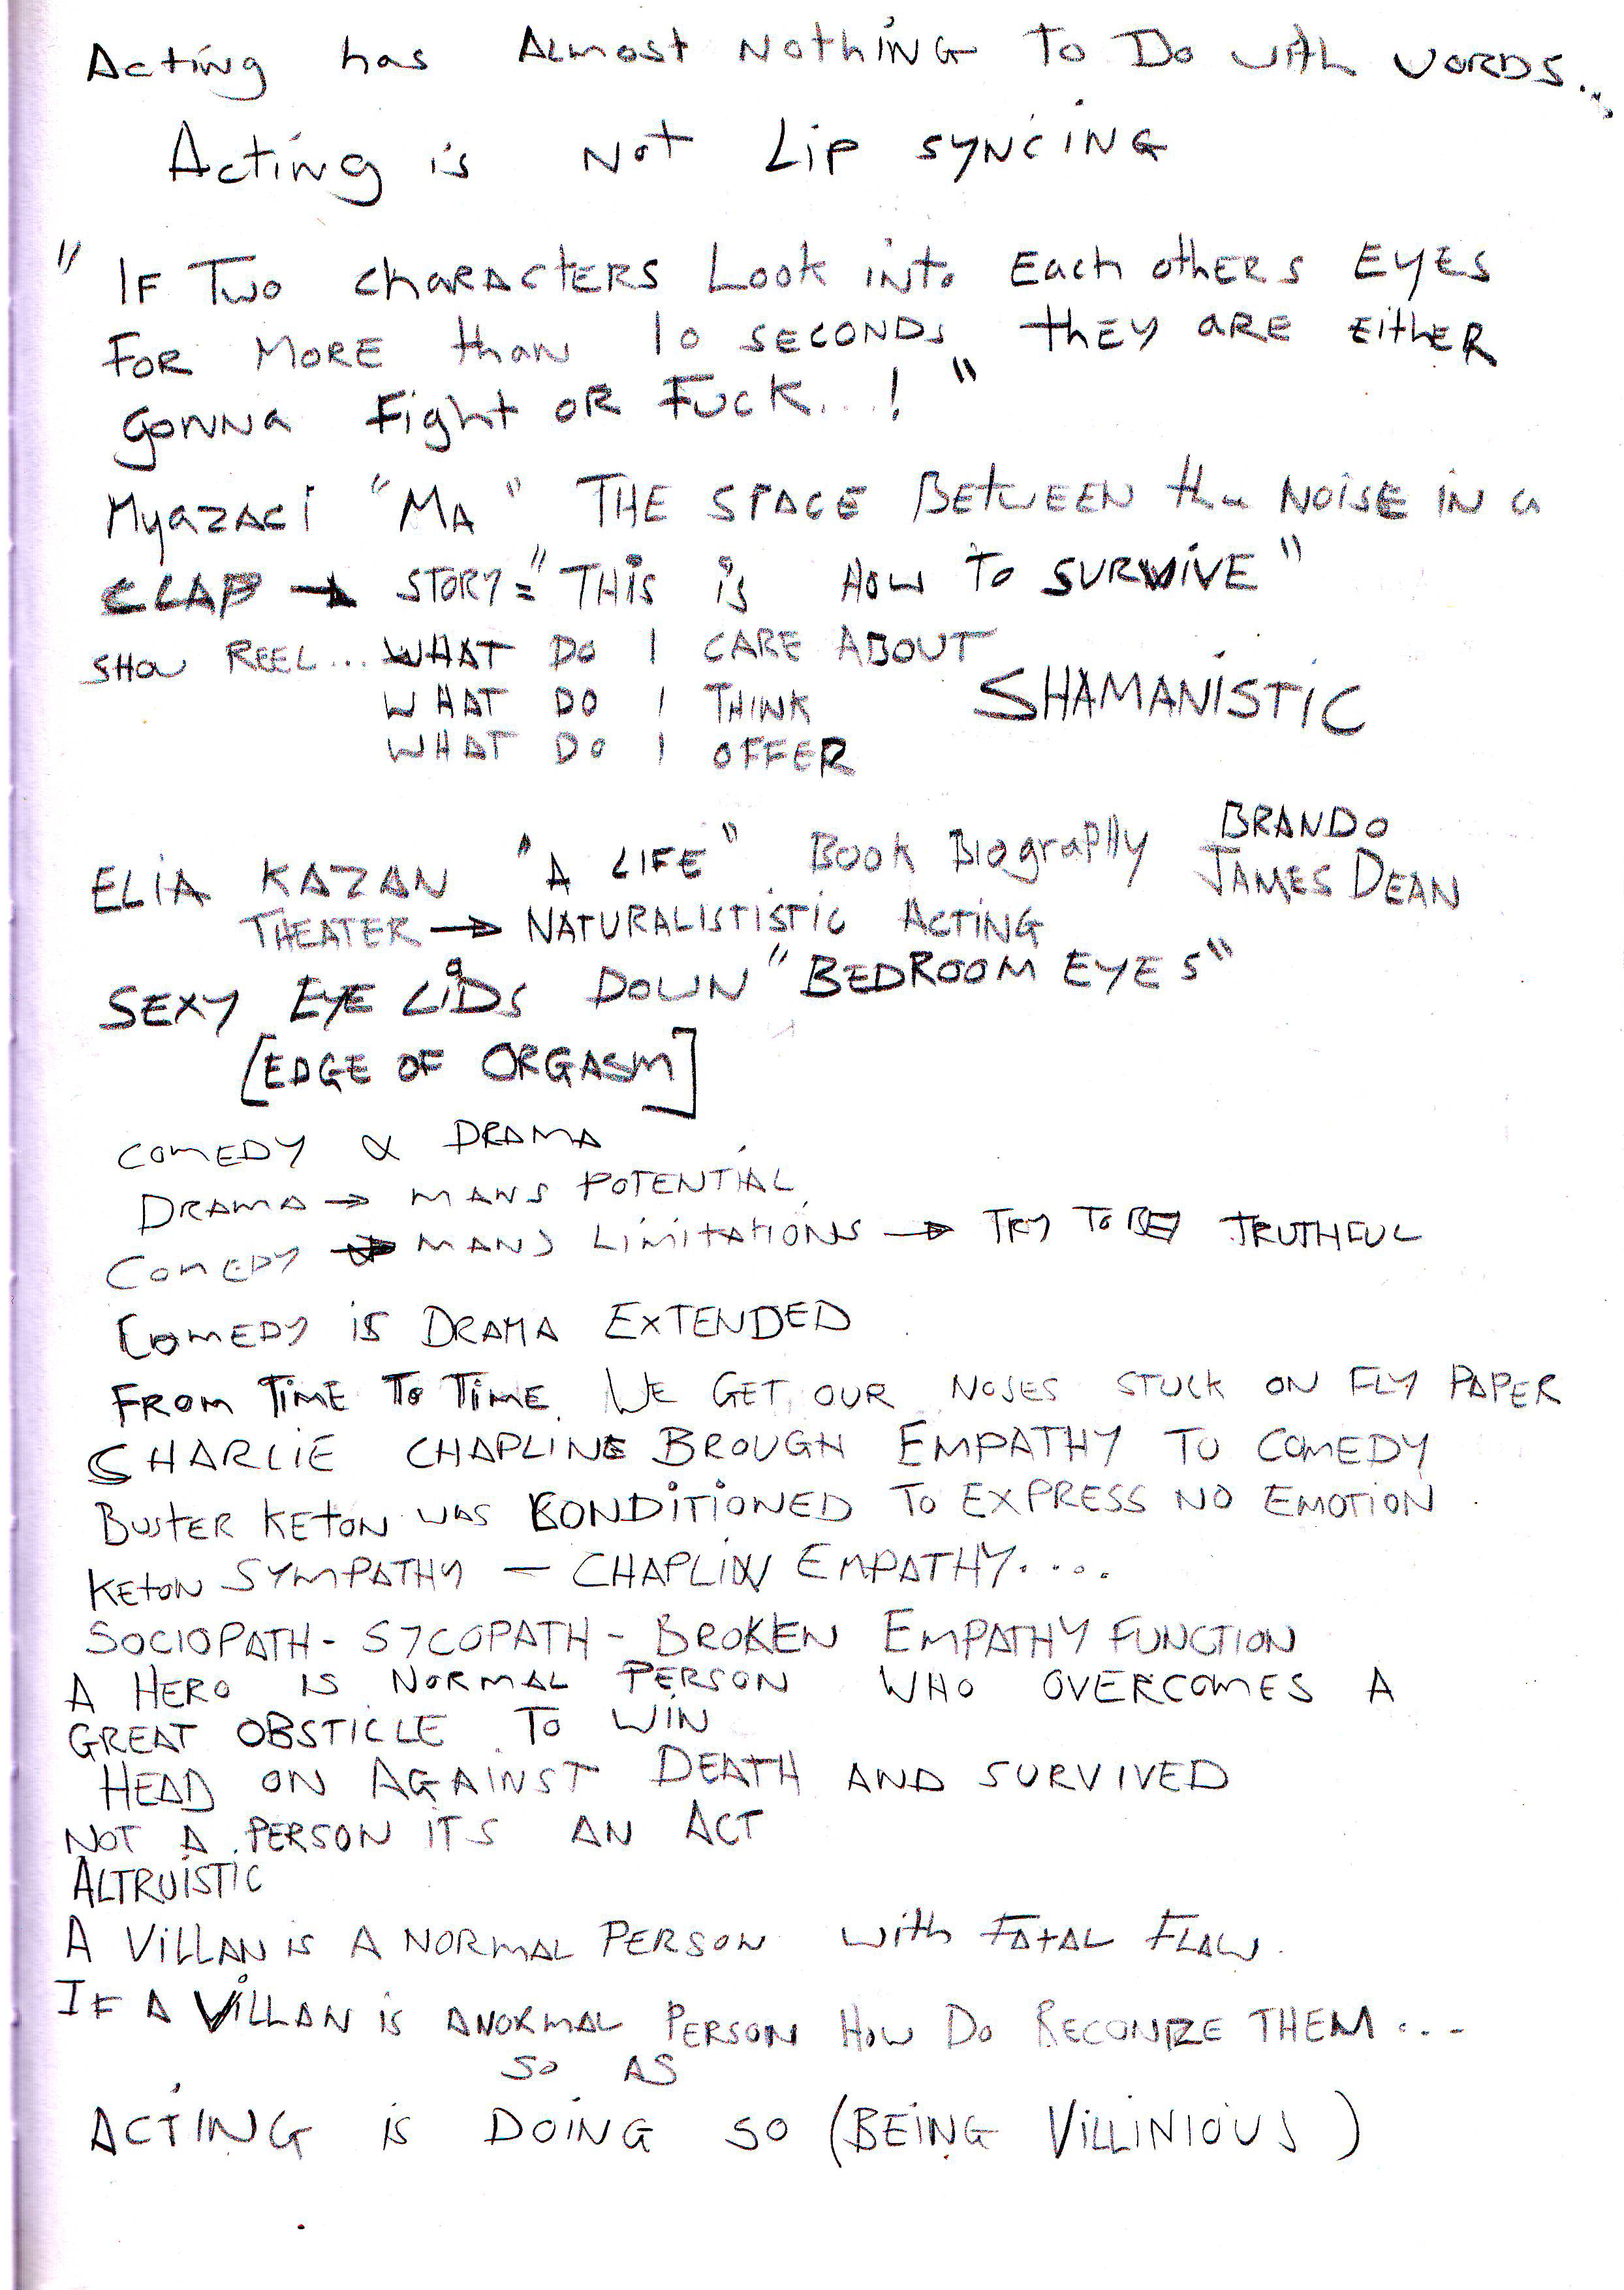 Acting has Almost Nothing To Do with words...
Acting is Not Lip syncing
"IF Two characters Look into Each others EyEs
FOR MORE than 10 SECONDS they are EithER
gonna Fight OR FUCK...!"
MyazaCi "MA" THE SPACE BETWEEN the NOISE IN a
CLAP → STORY = "THIS is HOW TO SURVIVE"
SHOW REEL... WHAT DO I CARE ABOUT
WHAT DO I THINK
SHAMANISTIC
WHAT DO I OFFER
ELIA KAZAN "A LIFE" BOOK BiograPHy BRANDO
JAMES DEAN
THEATER → NATURALISTISTIC ACTING
SEXY EYE LIDS DOWN "BEDROOM EYES"
[EDGE OF ORGASM]
COMEDY & DRAMA
DRAMA → MANS POTENTIAL
COMEDY → MANS LIMITATIONS → TRY TO BE TRUTHFUL
COMEDY IS DRAMA EXTENDED
FROM TIME TO TIME. WE GET OUR NOSES STUCK ON FLY PAPER
SHARLIE CHAPLINE BROUGH EMPATHY TO COMEDY
BUSTER KETON WAS CONDITIONED TO EXPRESS NO EMOTION
KETON SYMPATHY - CHAPLIN EMPATHY....
SOCIOPATH - SYCOPATH - BROKEN EMPATHY FUNCTION
A HERO IS NORMAL PERSON WHO OVERCOMES A
GREAT OBSTICLE TO WIN
HEAD ON AGAINST DEATH AND SURVIVED
NOT A PERSON ITS AN ACT
ALTRUISTIC
A VILLAN IS A NORMAL PERSON with FATAL FLAW.
IF A VILLAN IS A NORMAL PERSON HOW DO RECONIZE THEM...
SO AS
ACTING IS DOING SO (BEING VILLINIOUS)